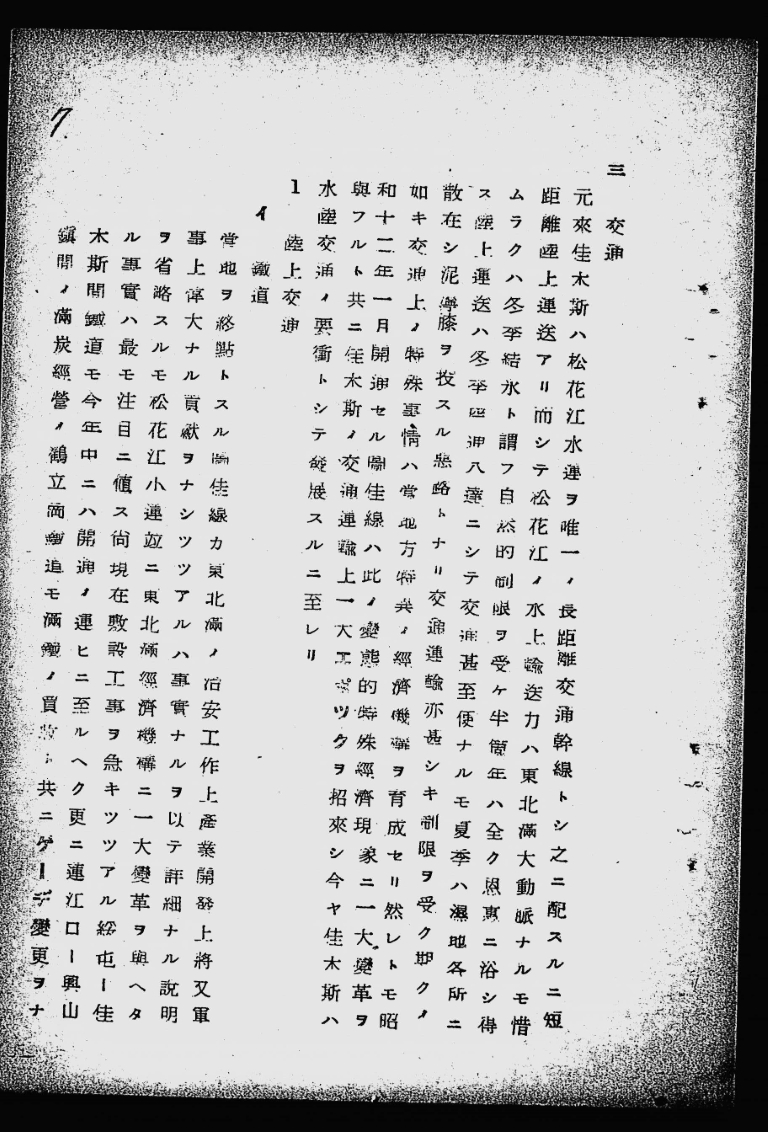 7
三 交通
元來佳木斯ハ松花江水運ヲ唯一ノ長距離交通幹線トシ之ニ配スルニ短
距離陸上運送アリ而シテ松花江ノ水上輸送力ハ東北滿大動脈ナルモ惜
ムラクハ冬季結氷ト謂フ自然的制限ヲ受ケ半箇年ハ全ク恩惠ニ浴シ得
ス陸上運送ハ冬季四通八達ニシテ交通甚至便ナルモ夏季ハ濕地各所ニ
散在シ泥濘膝ヲ投スル惡路トナリ交通運輸亦甚シキ制限ヲ受ク斯クノ
如キ交通上ノ特殊事情ハ當地方特異ノ經濟機構ヲ育成セリ然レトモ昭
和十二年一月開通セル圖佳線ハ此ノ變態的特殊經濟現象ニ一大變革ヲ
與フルト共ニ佳木斯ノ交通運輸上一大エポックヲ招來シ今ヤ佳木斯ハ
水陸交通ノ要衝トシテ發展スルニ至レリ
1 陸上交通
イ 鐵道
當地ヲ終點トスル圖佳線カ東北滿ノ治安工作上產業開發上將又軍
事上偉大ナル貢獻ヲナシツツアルハ事實ナルヲ以テ詳細ナル說明
ヲ省略スルモ松花江小運竝ニ東北滿經濟機構ニ一大變革ヲ與ヘタ
ル事實ハ最モ注目ニ値ス尙現在敷設工事ヲ急キツツアル綏屯ー佳
木斯間鐵道モ今年中ニハ開通ノ運ヒニ至ルヘク更ニ蓮江口ー興山
鎭間ノ滿炭經營ノ鶴立崗鐵道モ滿鐵ノ買收ト共ニゲーヂ變更ヲナ